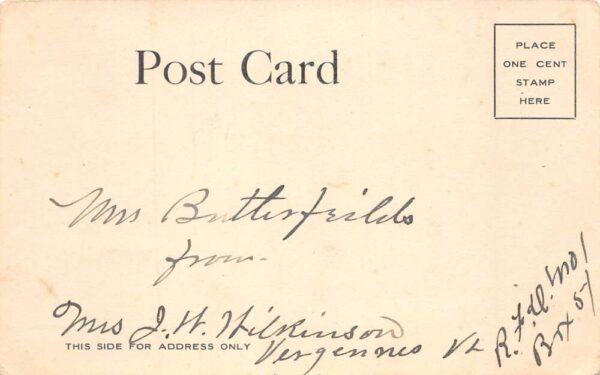 Post Card
PLACE
ONE CENT
STAMP
HERE
Mrs Butterfeilds
from
Mrs J. W. Wilkinson
Vergennes Vt
R.F.D. No 1
Box 57
THIS SIDE FOR ADDRESS ONLY